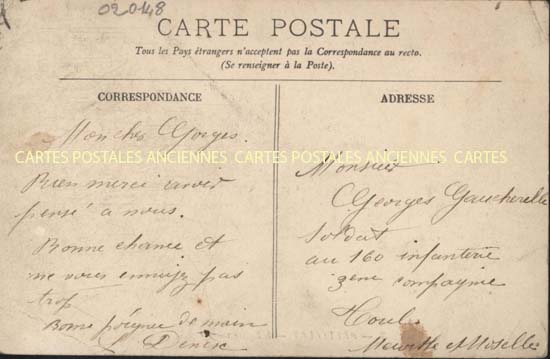 02048
CARTE POSTALE
Tous les Pays étrangers n'acceptent pas la Correspondance au recto.
(Se renseigner à la Poste).
CORRESPONDANCE
Mon cher Georges.
CARTES POSTALES ANCIENNES CARTES POSTALES ANCIENNES CARTES
Bien merci avoir
pensé a nous.
Bonne chance et
ne vous ennuyez pas
trop
Bonne poignée de main
Denise
ADRESSE
Monsieur
Georges Gaucherelle
soldat
au 160 infanterie
3eme compagnie
Toul
Meurthe et Moselle